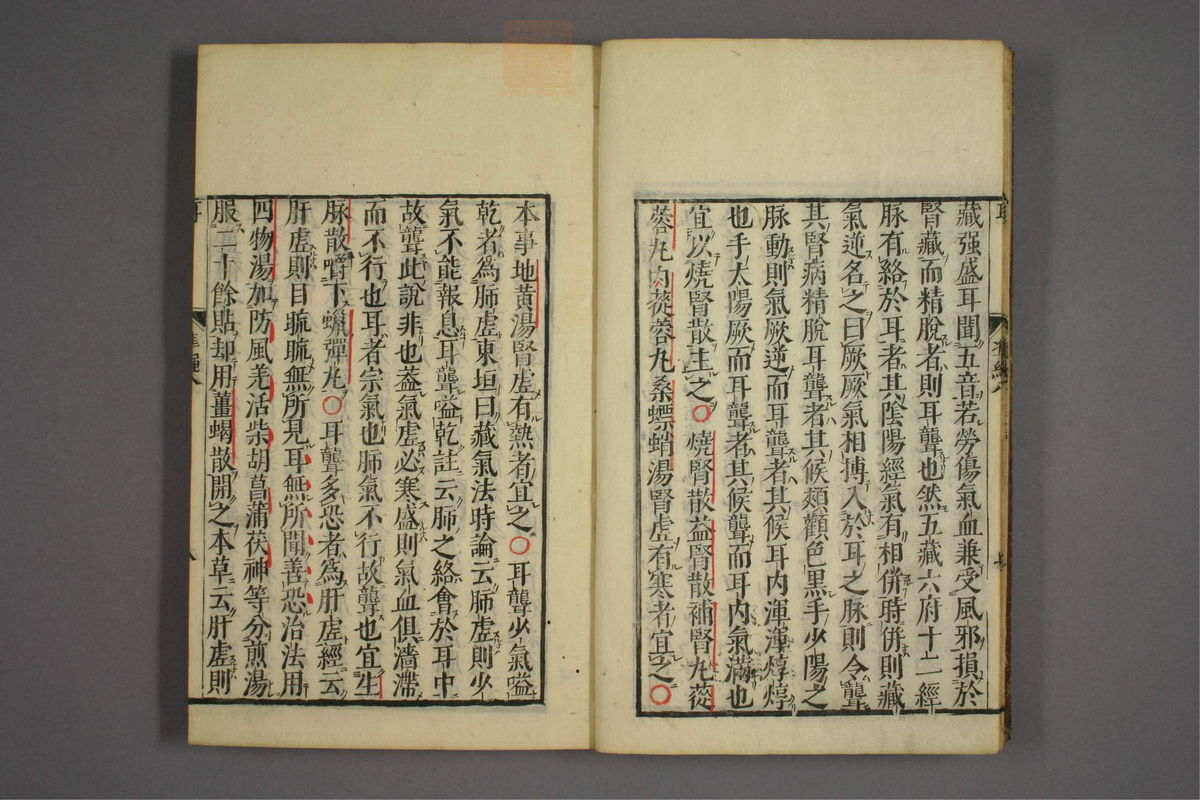 藏强盛耳聞五音若勞傷氣血兼受風邪損於
腎藏而精脫者則耳聾也然五藏六府十二經
脉有絡於耳者其陰陽經氣有相併時併則藏
氣逆名之曰厥厥氣相搏入於耳之脉則令聾
其腎病精脫耳聾者其候頰顴色黑手少陽之
脉動則氣厥逆而耳聾者其候耳内渾渾焞焞
也手太陽厥而耳聾者其候聾而耳内氣滿也
宜以燒腎散主之○燒腎散益腎散補腎丸蓯
蓉丸肉蓯蓉丸桑螵蛸湯腎虛有寒者宜之○
本事地黄湯腎虛有熱者宜之○耳聾少氣嗌
乾者為肺虛東垣曰藏氣法時論云肺虛則少
氣不能報息耳聾嗌乾註云肺之絡會於耳中
故聾此說非也葢氣虛必寒盛則氣血俱濇滯
而不行也耳者宗氣也肺氣不行故聾也宜生
脉散嚼下蠟彈丸○耳聾多恐者為肝虛經云
肝虛則目䀮䀮無所見耳無所聞善恐治法用
四物湯加防風羌活柴胡菖蒲茯神等分煎湯
服二十餘貼却用薑蝎散開之本草云肝虛則